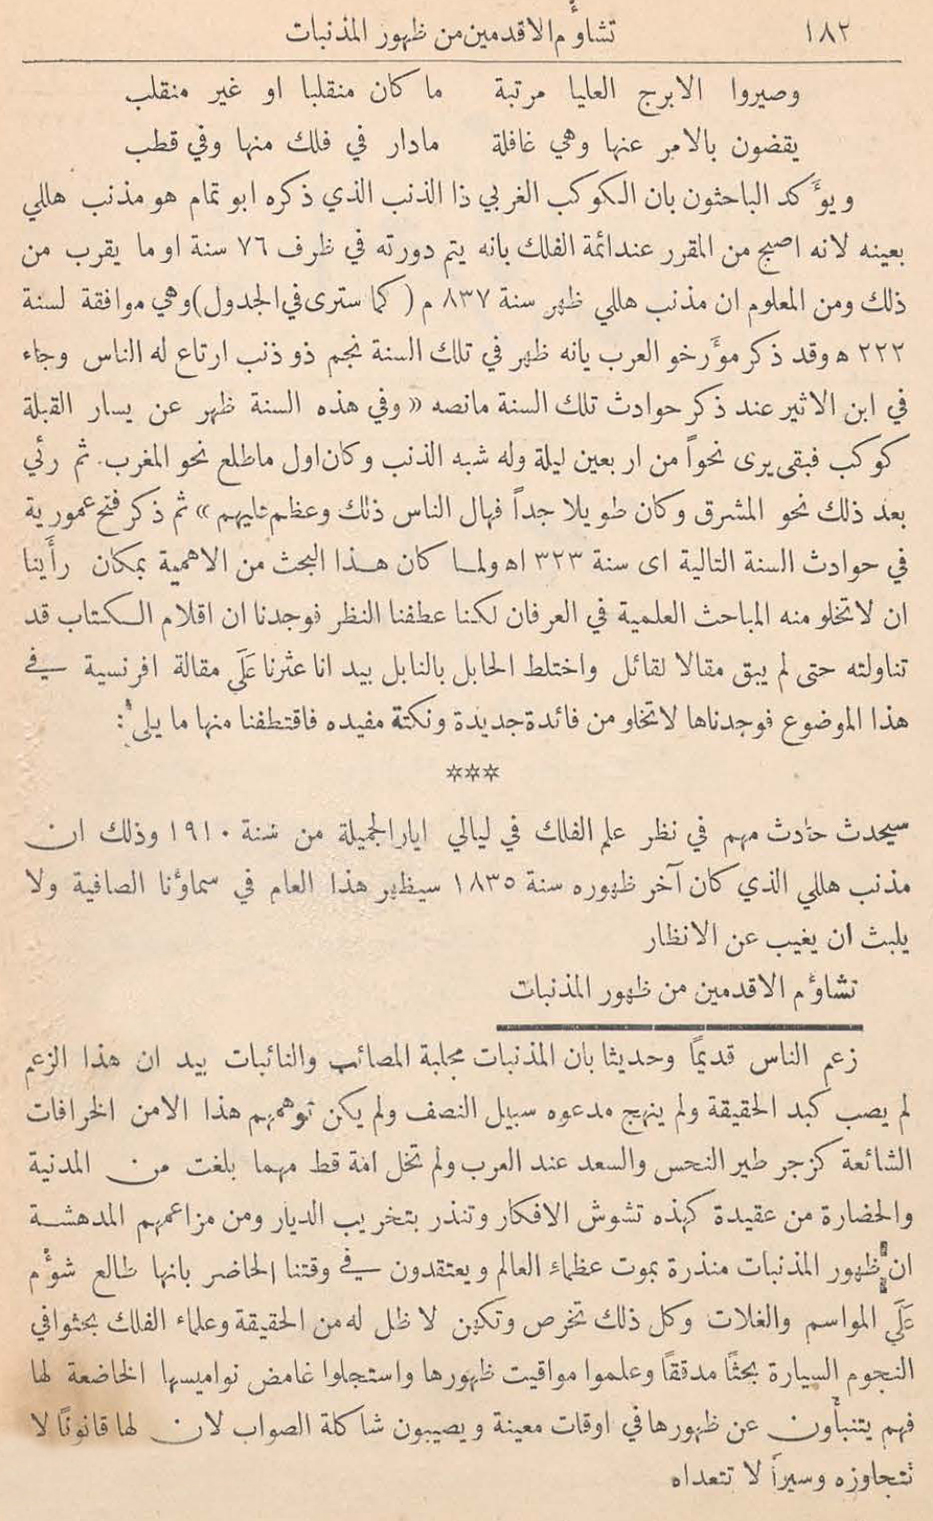 ١٨٢ تشاؤم الاقدمين من ظهور المذنبات
وصيروا الابرج العليا مرتبة ما كان منقلبا او غير منقلب
يقضون بالامر عنها وهي غافلة مادار في فلك منها وفي قطب
ويؤكد الباحثون بان الكوكب الغربي ذا الذنب الذي ذكره ابو تمام هو مذنب هللي
بعينه لانه اصبح من المقرر عند ائمة الفلك بانه يتم دورته في ظرف ٧٦ سنة او ما يقرب من
ذلك ومن المعلوم ان مذنب هللي ظهر سنة ٨٣٧ م ( كما سترى في الجدول) وهي موافقة لسنة
٢٢٢ ه وقد ذكر مؤرخو العرب بانه ظهر في تلك السنة نجم ذو ذنب ارتاع له الناس وجاء
في ابن الاثير عند ذكر حوادث تلك السنة مانصه « وفي هذه السنة ظهر عن يسار القبلة
كوكب فبقى يرى نحواً من اربعين ليلة وله شبه الذنب وكان اول ماطلع نحو المغرب. ثم رئي
بعد ذلك نحو المشرق وكان طويلا جداً فهال الناس ذلك وعظم عليهم » ثم ذكر فتح عمورية
في حوادث السنة التالية اى سنة ٣٢٣ اه ولما كان هذا البحث من الاهمية بمكان رأينا
ان لا تخلو منه المباحث العلمية في العرفان لكنا عطفنا النظر فوجدنا ان اقلام الكتاب قد
تناولته حتى لم يبق مقالا لقائل واختلط الحابل بالنابل بيد انا عثرنا عَلَى مقالة افرنسية في
هذا الموضوع فوجدناها لاتخلو من فائدة جديدة ونكتة مفيده فاقتطفنا منها ما يلي :
***
سيحدث حادث مهم في نظر علم الفلك في ليالي ايار الجميلة من سنة ١٩١٠ وذلك ان
مذنب هللي الذي كان آخر ظهوره سنة ١٨٣٥ سيظهر هذا العام في سماؤنا الصافية ولا
يلبث ان يغيب عن الانظار
تشاؤم الاقدمين من ظهور المذنبات
زعم الناس قديمًا وحديثا بان المذنبات مجلبة المصائب والنائبات بيد ان هذا الزعم
لم يصب كبد الحقيقة ولم ينهج مدعوه سبيل النصف ولم يكن توهمهم هذا الامن الخرافات
الشائعة كزجر طير النحس والسعد عند العرب ولم تخل امة قط مهما بلغت من المدنية
والحضارة من عقيدة كهذه تشوش الافكار وتنذر بتخريب الديار ومن مزاعمهم المدهشة
ان ظهور المذنبات منذرة بموت عظماء العالم ويعتقدون في وقتنا الحاضر بانها طالع شؤم
عَلَى المواسم والغلات وكل ذلك تخرص وتكهن لا ظل له من الحقيقة وعلماء الفلك بحثوا في
النجوم السيارة بحثًا مدققًا وعلموا مواقيت ظهورها واستجلوا غامض نواميسها الخاضعة لها
فهم يتنبأون عن ظهورها في اوقات معينة ويصيبون شاكلة الصواب لان لها قانونًا لا
تتجاوزه وسيراً لا تتعداه